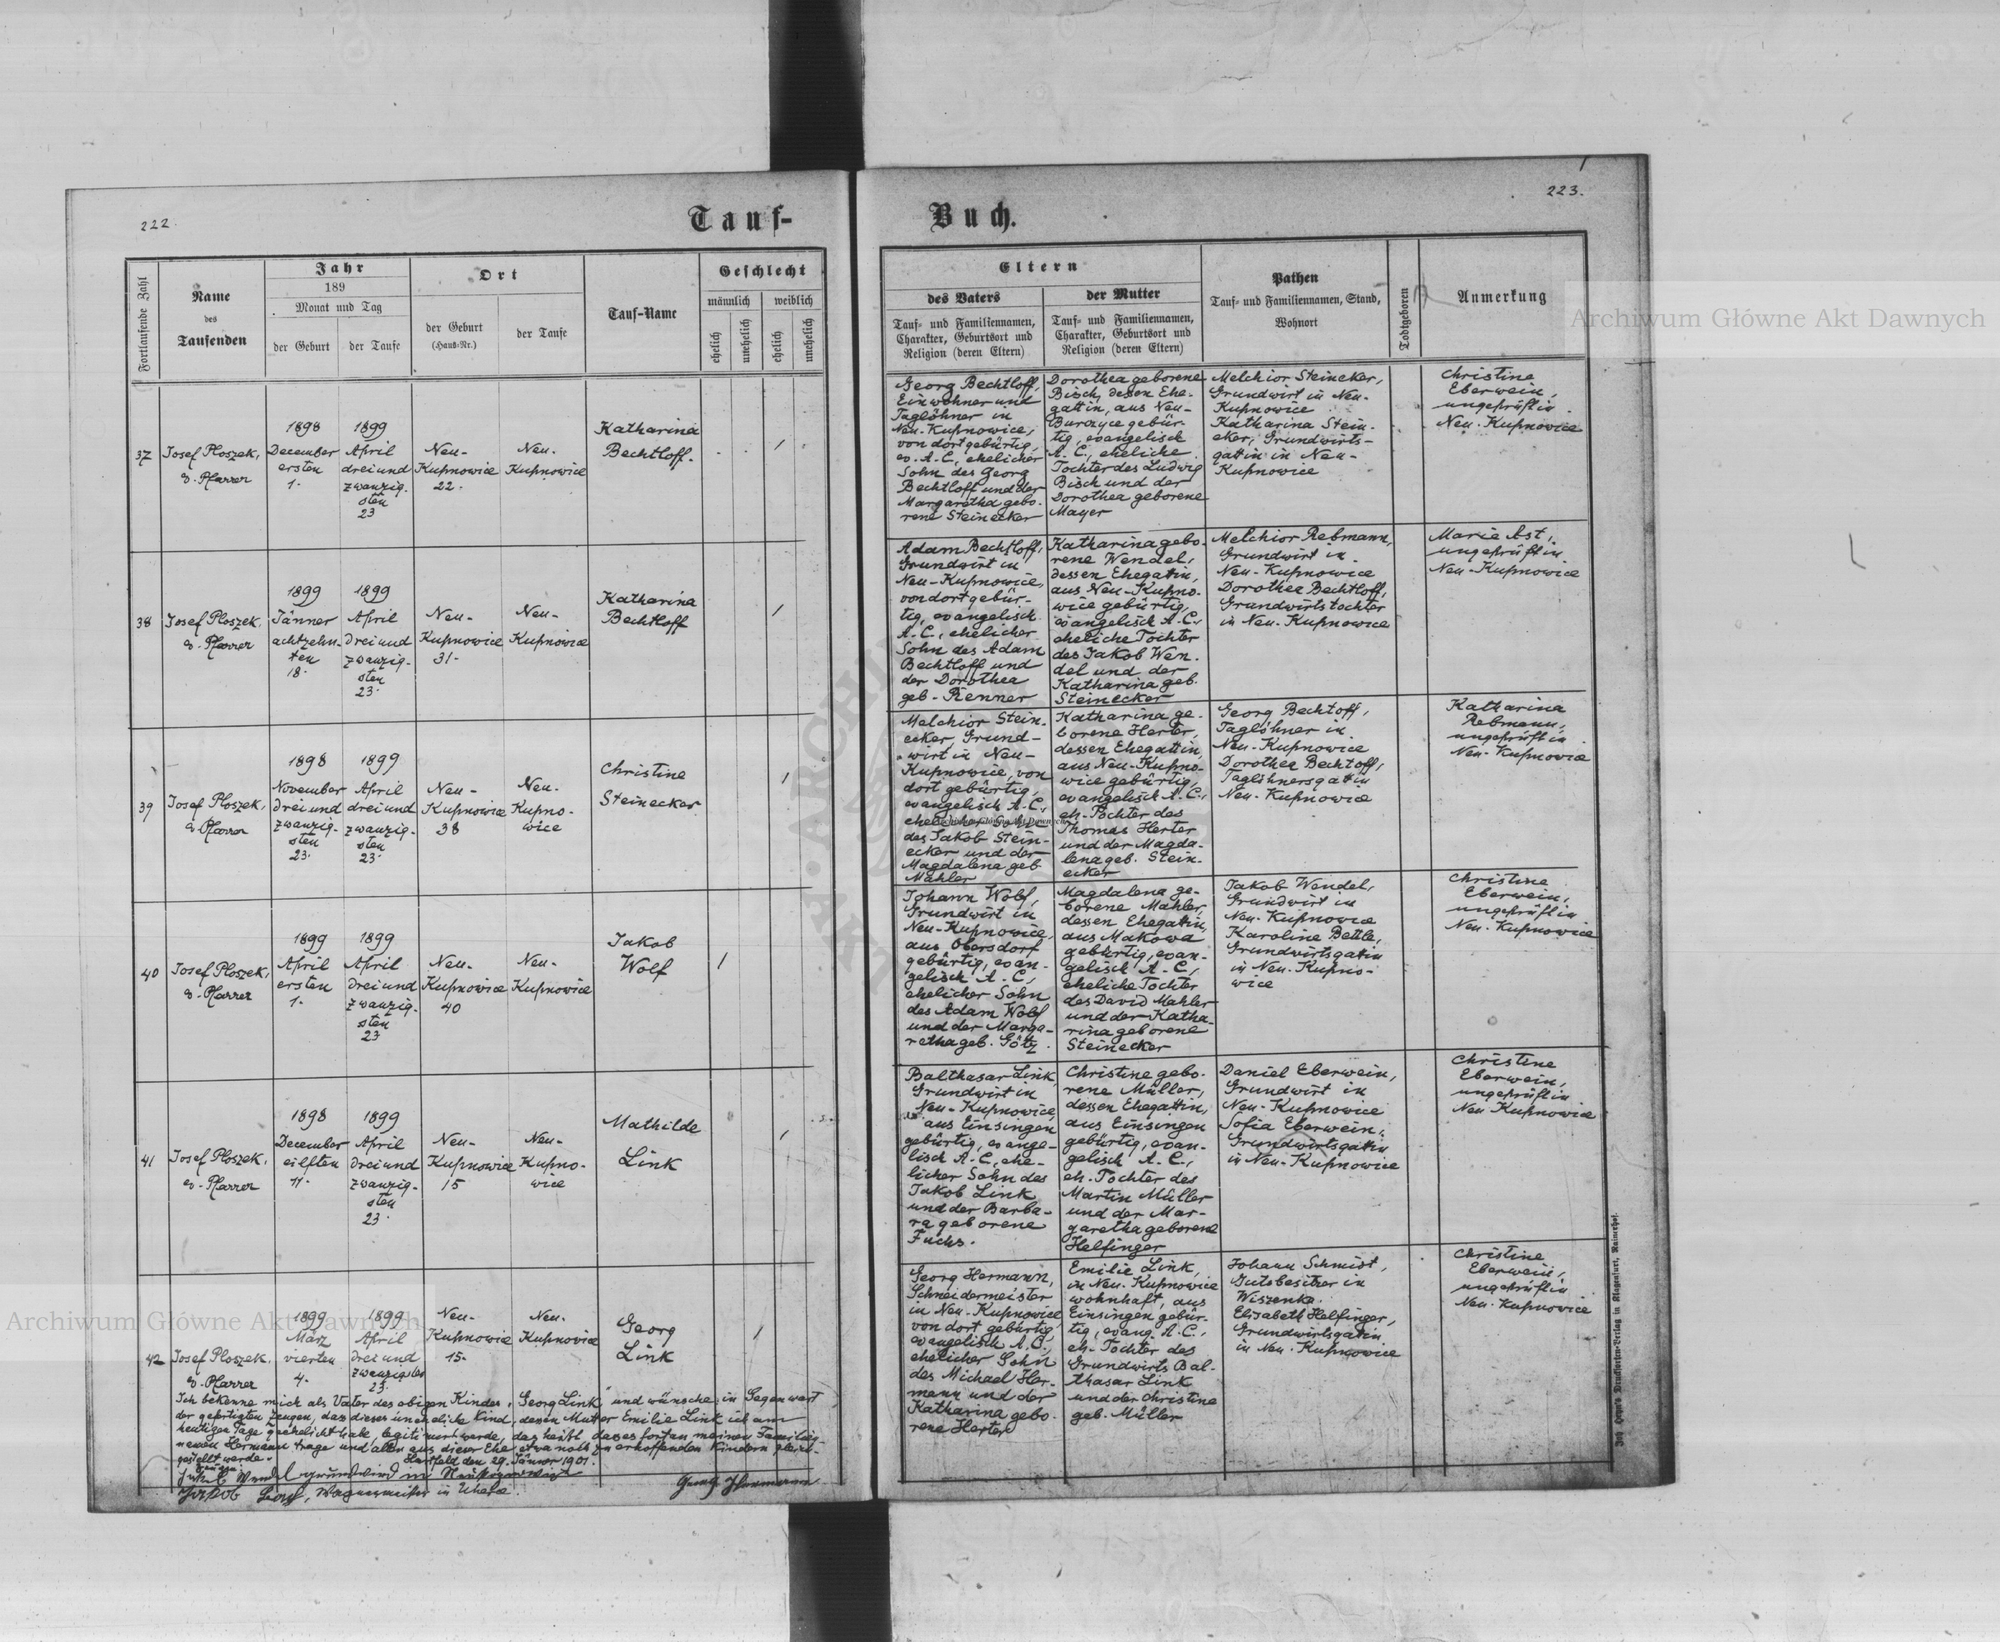 222.
Tauf-
Fortlaufende Zahl
Name
des
Taufenden
Jahr
189
Monat und Tag
der Geburt
der Taufe
Ort
der Geburt
(Haus-Nr.)
der Taufe
Tauf-Name
Geschlecht
männlich
weiblich
ehelich
unehelich
ehelich
unehelich
37
Josef Ploszek,
ev. Pfarrer
1898
December
ersten
1.
1899
April
dreiund
zwanzig-
sten
23
Neu-
Kupnowice
22.
Neu-
Kupnowice
Katharina
Bechtloff.
38
Josef Ploszek.
ev. Pfarrer
1899
Jänner
achtzehn-
ten
18.
1899
April
dreiund
zwanzig-
sten
23.
Neu-
Kupnowice
31.
Neu-
Kupnowice
Katharina
Bechtloff
39
Josef Ploszek,
ev. Pfarrer
1898
November
dreiund
zwanzig-
sten
23.
1899
April
dreiund
zwanzig-
sten
23.
Neu-
Kupnowice
38
Neu-
Kupno-
wice
Christine
Steinecker
40
Josef Ploszek,
ev. Pfarrer
1899
April
ersten
1.
1899
April
dreiund
zwanzig-
sten
23
Neu-
Kupnowice
40
Neu-
Kupnowice
Jakob
Wolf
41
Josef Ploszek,
ev. Pfarrer
1898
December
eilften
11.
1899
April
dreiund
zwanzig-
sten
23.
Neu-
Kupnowice
15
Neu-
Kupno-
wice
Mathilde
Link
42
Josef Ploszek,
ev. Pfarrer
1899
März
vierten
4.
1899
April
dreiund
zwanzigsten
23.
Neu-
Kupnowice
15.
Neu-
Kupnowice
Georg
Link
Ich bekenne mich als Vater des obigen Kindes, Georg Link und wünsche in Gegenwart
der gefertigten Zeugen, dass dieses uneheliche Kind, dessen Mutter Emilie Link ich am
heutigen Tage geehelicht habe, legitimirt werde, das heißt dass es fortan meinen Familien
namen Hermann trage und allen aus dieser Ehe etwa noch zu erhoffenden Kindern gleich-
gestellt werde.
Hartfeld den 29. Jänner 1901.
Zeugen:
Jakob Wendel grundwird in
Georg Hermann
Jakob, Wagnermeister in
223.
Buch.
Eltern
des Vaters
Tauf- und Familiennamen,
Charakter, Geburtsort und
Religion (deren Eltern)
der Mutter
Tauf- und Familiennamen,
Charakter, Geburtsort und
Religion (deren Eltern)
Pathen
Tauf- und Familiennamen, Stand,
Wohnort
Todtgeboren
Anmerkung
Georg Bechtloff,
Einwohner und
Taglöhner in
Neu-Kupnowice,
von dort gebürtig,
ev. A. C., ehelicher
Sohn des Georg
Bechtloff und der
Margaretha gebo-
rene Steinecker
Dorothea geborene
Bisch, dessen Ehe-
gattin, aus Neu-
Burczyce gebür-
tig, evangelisch
A. C., eheliche
Tochter des Ludwig
Bisch und der
Dorothea geborene
Mayer
Melchior Steineker,
Grundwirt in Neu-
Kupnowice
Katharina Stein-
eker, Grundwirts-
gattin in Neu-
Kupnowice
Christine
Eberwein,
ungeprüft in
Neu-Kupnowice
Adam Bechtloff,
Grundwirt in
Neu-Kupnowice,
von dort gebür-
tig, evangelisch
A. C., ehelicher
Sohn des Adam
Bechtloff und
der Dorothea
geb. Renner
Katharina gebo-
rene Wendel,
dessen Ehegattin,
aus Neu-Kupno-
wice gebürtig,
evangelisch A. C.,
eheliche Tochter
des Jakob Wen-
del und der
Katharina geb.
Steinecker
Melchior Rebmann,
Grundwirt in
Neu-Kupnowice
Dorothea Bechtloff,
Grundwirtstochter
in Neu-Kupnowice
Marie Ast,
ungeprüft in
Neu-Kupnowice
Melchior Stein-
ecker, Grund-
wirt in Neu-
Kupnowice, von
dort gebürtig,
evangelisch A. C.,
ehelicher Sohn
des Jakob Stein-
ecker und der
Magdalena geb.
Mahler
Katharina ge-
borene Herter,
dessen Ehegattin,
aus Neu-Kupno-
wice gebürtig,
evangelisch A. C.,
eh. Tochter des
Thomas Herter
und der Magda-
lena geb. Stein-
ecker
Georg Bechtoff,
Taglöhner in
Neu-Kupnowice
Dorothea Bechtoff,
Taglöhnersgattin
Neu-Kupnowice
Katharina
Rebmann,
ungeprüft in
Neu-Kupnowice
Johann Wolf,
Grundwirt in
Neu-Kupnowice,
aus Obersdorf
gebürtig, evan-
gelisch A. C.,
ehelicher Sohn
des Adam Wolf
und der Marga-
retha geb. Götz.
Magdalena ge-
borene Mahler,
dessen Ehegattin,
aus Makowa
gebürtig, evan-
gelisch A. C.,
eheliche Tochter
des David Mahler
und der Katha-
rina geborene
Steinecker
Jakob Wendel,
Grundwirt in
Neu-Kupnowice
Karoline Bettle,
Grundwirtsgattin
in Neu-Kupno-
wice
Christine
Eberwein,
ungeprüft in
Neu-Kupnowice
Balthasar Link,
Grundwirt in
Neu-Kupnowice,
aus Einsingen
gebürtig, evange-
lisch A. C., ehe-
licher Sohn des
Jakob Link
und der Barba-
ra geborene
Fuchs.
Christine gebo-
rene Müller,
dessen Ehegattin,
aus Einsingen
gebürtig, evan-
gelisch A. C.,
eh. Tochter des
Martin Müller
und der Mar-
garetha geborene
Helfinger
Daniel Eberwein,
Grundwirt in
Neu-Kupnowice
Sofia Eberwein,
Grundwirtsgattin
in Neu-Kupnowice
Christine
Eberwein,
ungeprüft in
Neu Kupnowice
Georg Hermann,
Schneidermeister
in Neu-Kupnowice,
von dort gebürtig,
evangelisch A. C.,
ehelicher Sohn
des Michael Her-
mann und der
Katharina gebo-
rene Herter
Emilie Link,
in Neu-Kupnowice
wohnhaft, aus
Einsingen gebür-
tig, evang. A. C.,
eh. Tochter des
Grundwirts Bal-
thasar Link
und der Christine
geb. Müller
Johann Schmidt,
Gutsbesitzer in
Wiszenka.
Elisabeth Helfinger,
Grundwirtsgattin
in Neu-Kupnowice
Christine
Eberwein,
ungeprüft in
Neu-Kupnowice
Joh. Heyn's Drucksorten-Verlag in Klagenfurt, Rainerhof.
Archiwum Główne Akt Dawnych
Archiwum Główne Akt Dawnych
Archiwum Główne Akt Dawnych